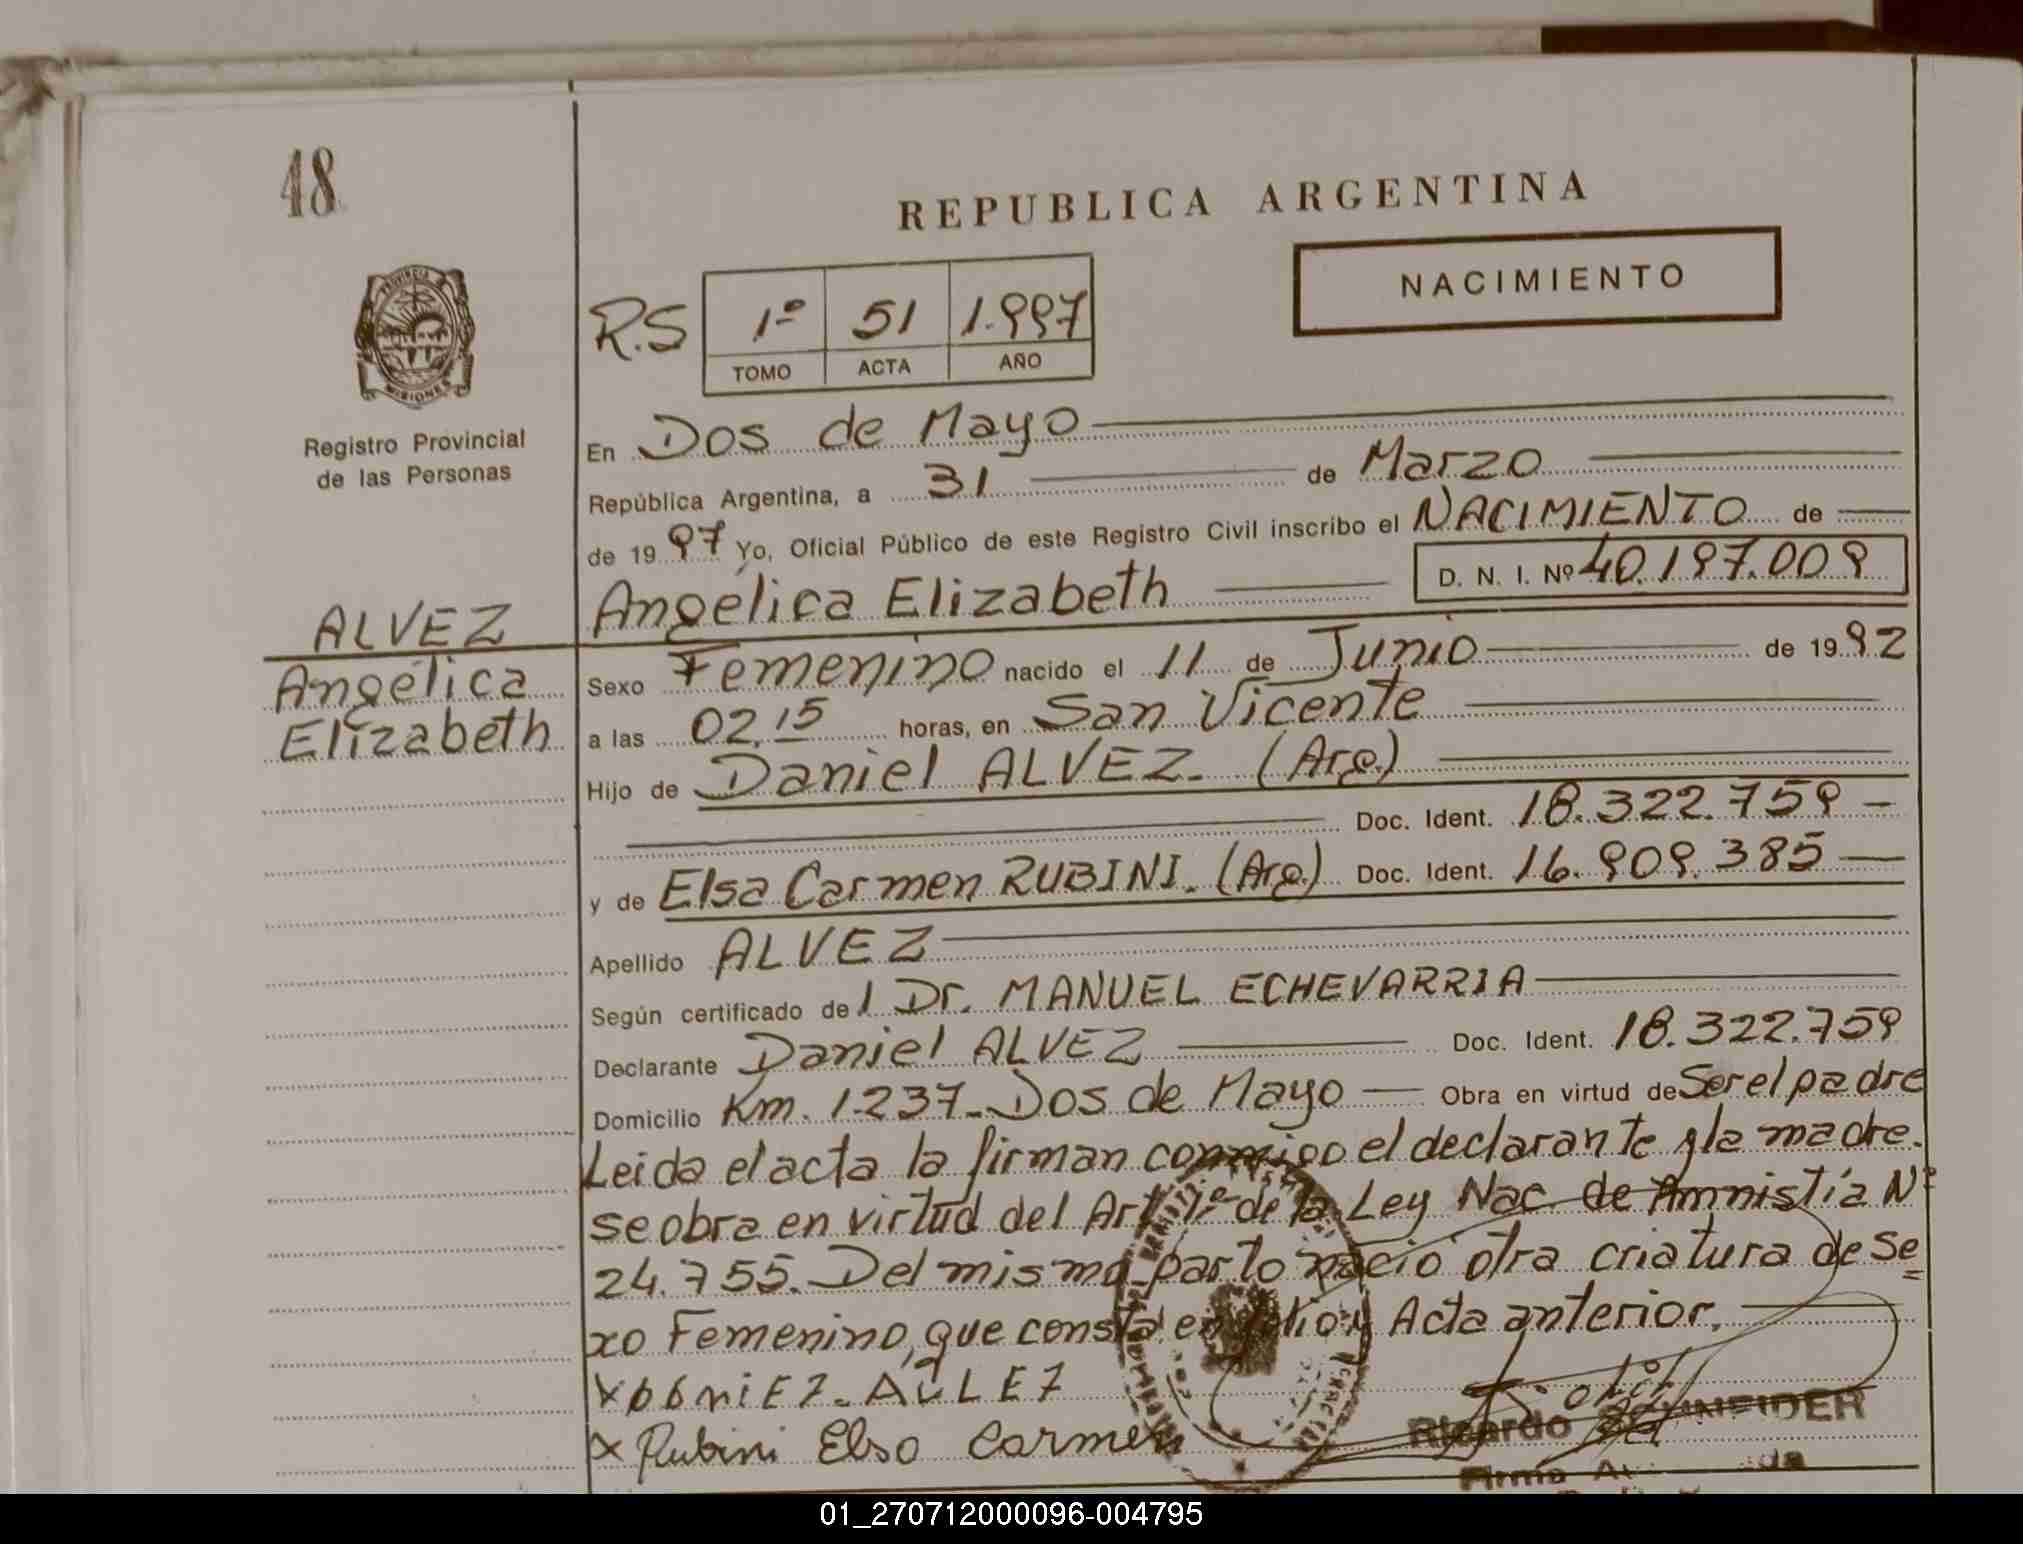 48
REPUBLICA ARGENTINA
NACIMIENTO
PROVINCIA
MISIONES
Registro Provincial
de las Personas
R.S
1º 51 1.997
TOMO ACTA AÑO
En Dos de Mayo
República Argentina, a 31 de Marzo
de 1997 Yo, Oficial Público de este Registro Civil inscribo el NACIMIENTO de
Angélica Elizabeth D. N. I. Nº 40.197.009
ALVEZ
Angélica
Elizabeth
Sexo Femenino nacido el 11 de Junio de 1992
a las 02,15 horas, en San Vicente
Hijo de Daniel ALVEZ. (Arg.)
Doc. Ident. 18.322.759
y de Elsa Carmen RUBINI. (Arg.) Doc. Ident. 16.909.385
Apellido ALVEZ
Según certificado del Dr. MANUEL ECHEVARRIA
Declarante Daniel ALVEZ Doc. Ident. 18.322.759
Domicilio Km. 1.237 - Dos de Mayo Obra en virtud de Ser el padre
Leida el acta la firman conmigo el declarante y la madre.
se obra en virtud del Art 1º de la Ley Nac de Amnistía Nº
24.755. Del mismo parto nació otra criatura de Se=
xo Femenino, que consta en folio y Acta anterior.
x Rubini Elsa Carmen
Ricardo SCHNEIDER
01_270712000096-004795